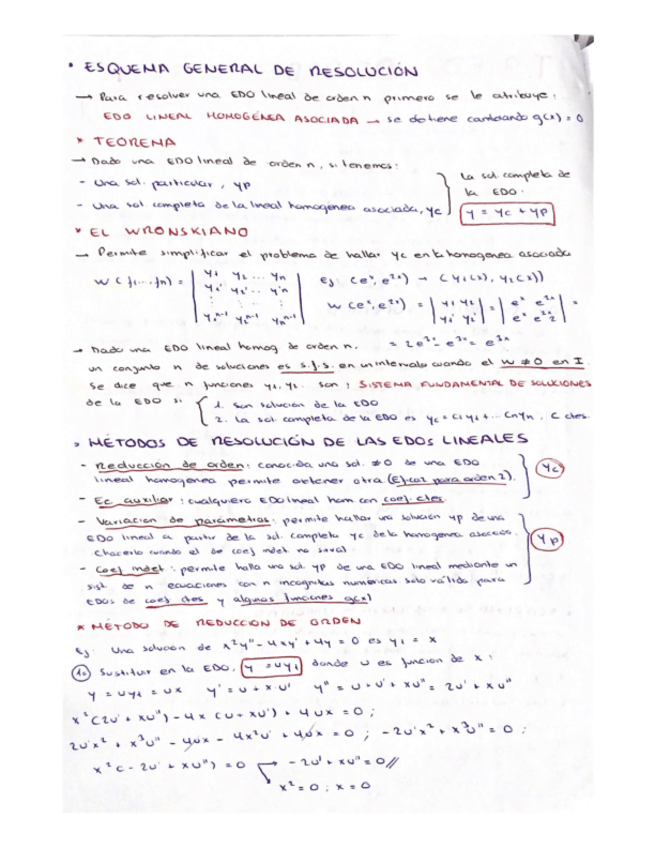 • ESQUEMA GENERAL DE RESOLUCIÓN
→ Para resolver una EDO lineal de orden n primero se le atribuye:
EDO LINEAL HOMOGÉNEA ASOCIADA → se obtiene cambiando g(x) = 0
* TEOREMA
→ Dado una EDO lineal de orden n, si tenemos:
- Una sol. particular, yp
- Una sol. completa de la lineal homogenea asociada, yc
La sol. completa de
la EDO:
y = yc + yp
* EL WRONSKIANO
→ Permite simplificar el problema de hallar yc en la homogenea asociada
W (f1...fn) = | y1 y2 ... yn
y1' y2' ... y'n
: : : :
y1^n-1 y2^n-1 yn^n-1 |
Ej: (e^x, e^2x) → (y1(x), y2(x))
W (e^x, e^2x) = | y1 y2 y1' y2' | = | e^x e^2x e^x e^2x 2 | =
= 2e^3x - e^3x = e^3x
→ Dado una EDO lineal homog de orden n,
un conjunto n de soluciones es s.f.s. en un intervalo cuando el W ≠ 0 en I.
Se dice que n funciones y1, y2 son: SISTEMA FUNDAMENTAL DE SOLUCIONES
de la EDO si
1. Son solución de la EDO
2. La sol. completa de la EDO es yc = C1y1 + ... Cnyn, C ctes.
> MÉTODOS DE RESOLUCIÓN DE LAS EDOs LINEALES
- Reducción de orden: conocida una sol. ≠ 0 de una EDO
lineal homogenea permite obtener otra (Eficaz para orden 2).
yc
- Ec auxiliar: cualquiera EDO lineal hom con coef. ctes.
- Variación de parámetros: permite hallar una solución yp de una
EDO lineal a partir de la sol. completa yc de la homogenea asociada.
(hacerlo cuando el de coef indet. no sirva)
yp
- Coef indet: permite halla una sol. yp de una EDO lineal mediante un
sist de n ecuaciones con n incognitas numéricas solo válido para
EDOs de coef ctes y algunas funciones g(x)
* MÉTODO DE REDUCCIÓN DE ORDEN
Ej: Una solución de x²y'' - 4xy' + 4y = 0 es y1 = x
1º Sustituir en la EDO, y = uy1 donde u es función de x:
y = uy1 = ux y' = u + x·u' y'' = u' + u' + xu'' = 2u' + xu''
x²(2u' + xu'') - 4x (u + xu') + 4ux = 0;
2u'x² + x³u'' - 4ux - 4x²u' + 4ux = 0; - 2u'x² + x³u'' = 0;
x²(- 2u' + xu'') = 0 → - 2u' + xu'' = 0 //
x² = 0; x = 0